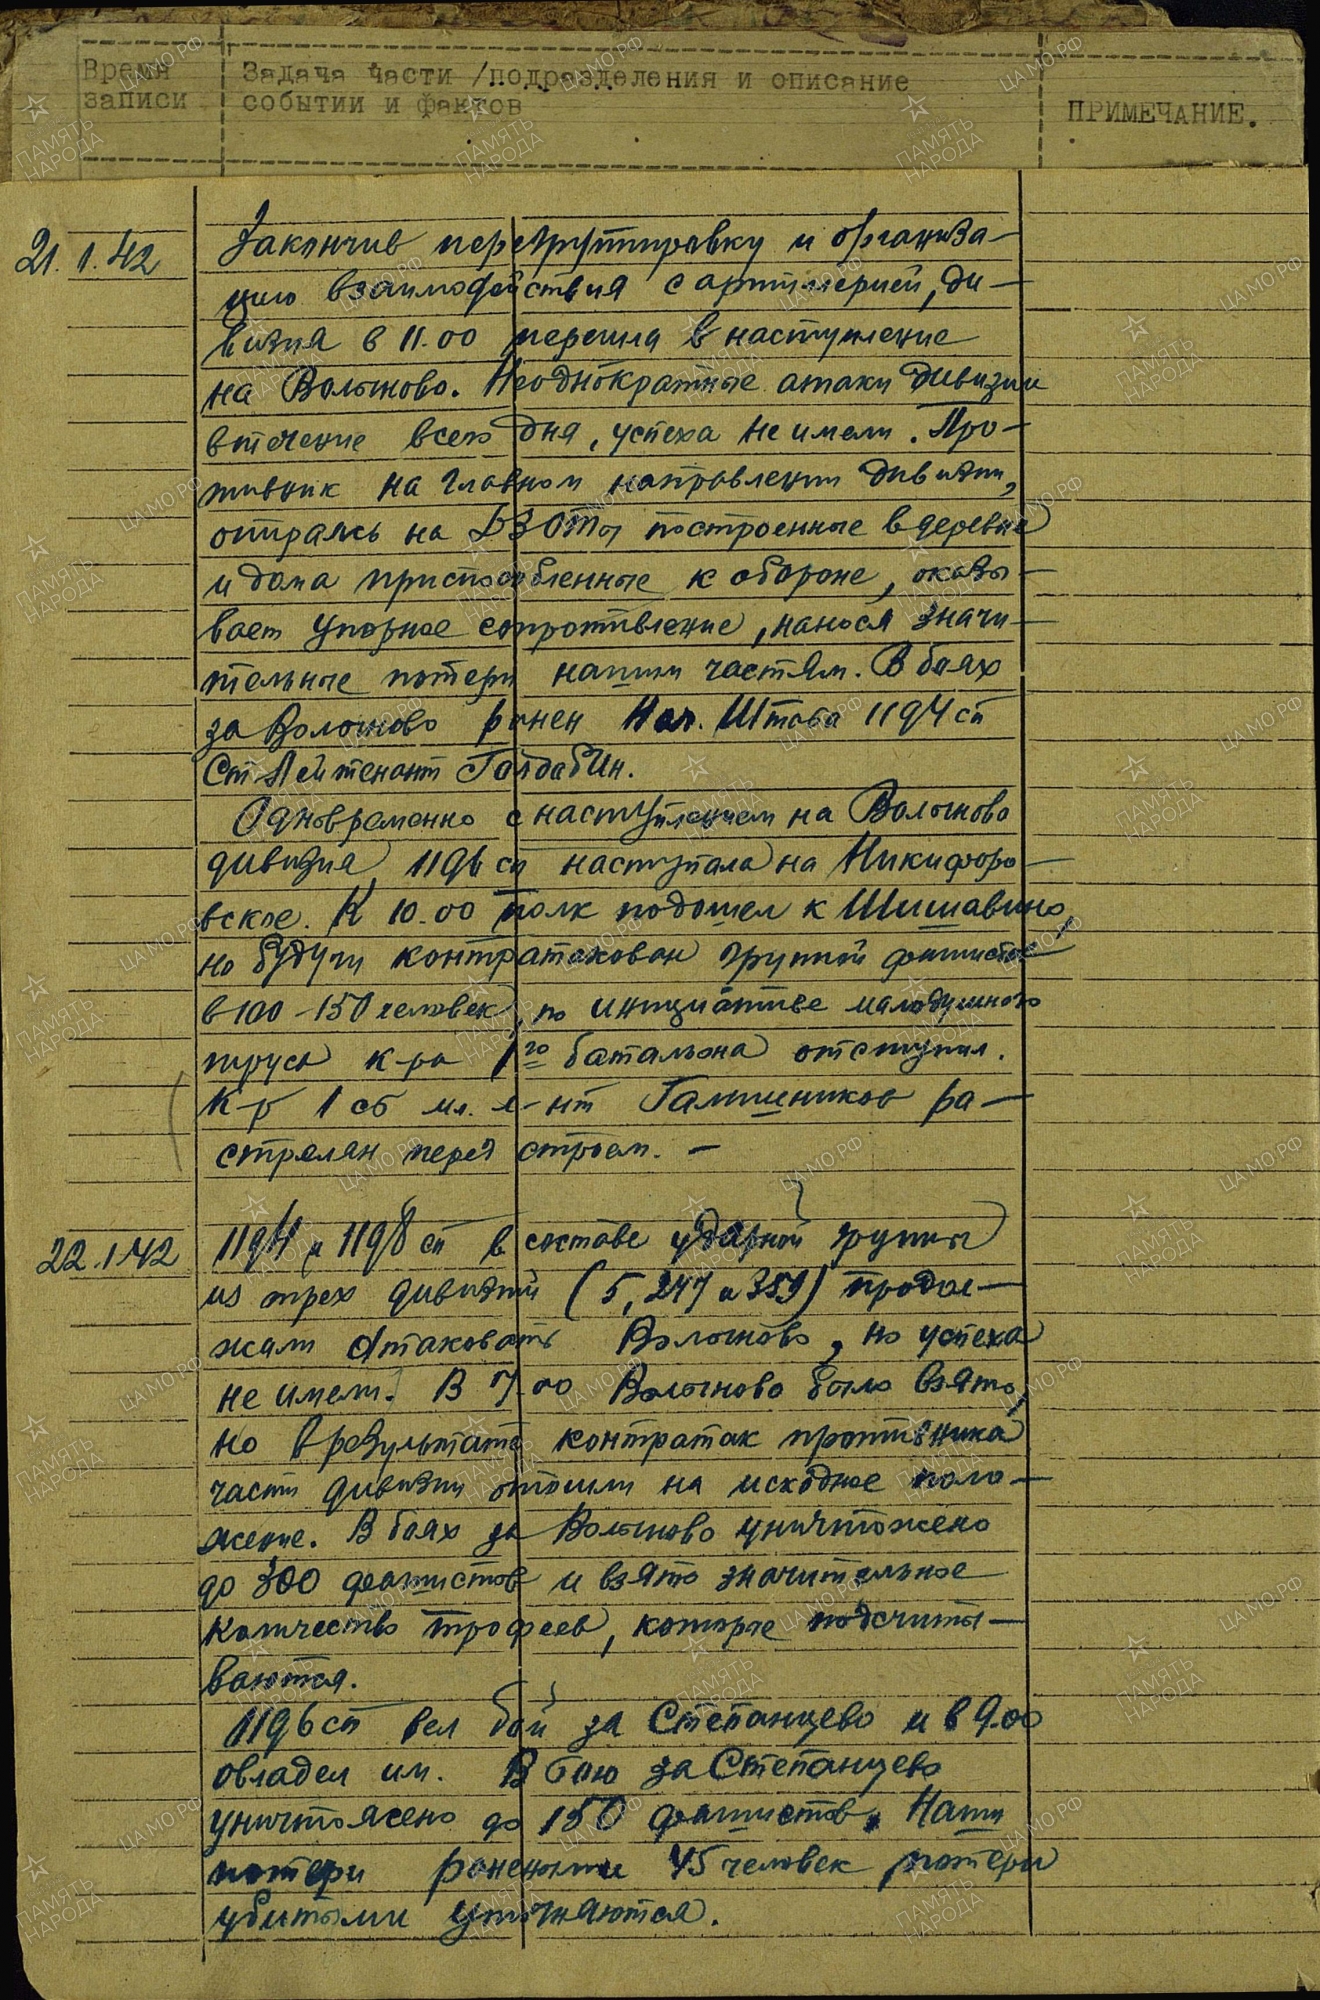 Время записи
Задача части /подразделения и описание
событии и фактов
ПРИМЕЧАНИЕ.
21.1.42
Закончив перегруппировку и организа-
цию взаимодействия с артиллерией, ди-
визия в 11.00 перешла в наступление
на Волыново. Неоднократные атаки дивизии
втечение всего дня, успеха не имели. Про-
тивник на главном направлении дивизии,
опираясь на ДЗОТы построенные в деревне
и дома приспособленные к обороне, оказы-
вает упорное сопротивление, нанося значи-
тельные потери нашим частям. В боях
за Волыново ранен Нач. Штаба 1194 сп
Ст. Лейтенант
Одновременно с наступлением на Волыново
дивизия, 1196 сп наступала на Никифоро-
вское. К 10.00 полк подошел к Шишавино,
но будучи контратакован группой фашистов
в 100-150 человек, по инициативе малодушного
труса к-ра 1го батальона отступил.
К-р 1 сб мл. л-нт Галишников ра-
стрелян перед строем. –
22.1.42
1194 и 1198 сп в составе ударной группы
из трех дивизий (5, 247 и 359) продол-
жали атаковать Волыново, но успеха
не имели. В 7.00 Волыново было взято,
но в результате контратак противника
части дивизии отошли на исходное поло-
жение. В боях за Волыново уничтожено
до 300 фашистов и взято значительное
количество трофеев, которые подсчиты-
ваются.
1196 сп вел бой за Степанцево и в 9.00
овладел им. В бою за Степанцево
уничтожено до 150 фашистов. Наши
потери ранеными 45 человек, потери
убитыми уточняются.
ПАМЯТЬ НАРОДА
ЦА МО РФ